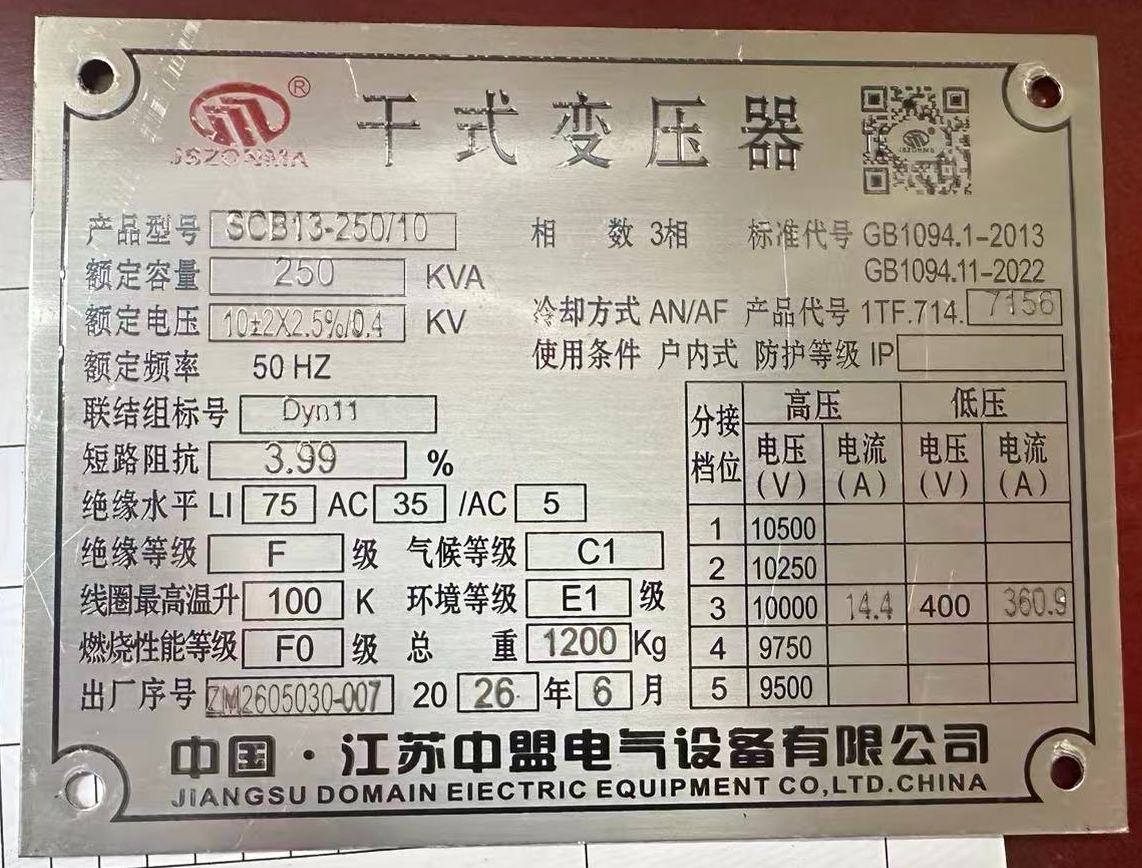 JSZONMA ®
干式变压器
产品型号 SCB13-250/10 相 数 3相 标准代号 GB1094.1-2013
额定容量 250 KVA GB1094.11-2022
额定电压 10±2X2.5%/0.4 KV 冷却方式 AN/AF 产品代号 1TF.714.7156
额定频率 50 HZ 使用条件 户内式 防护等级 IP
联结组标号 Dyn11
短路阻抗 3.99 %
绝缘水平 LI 75 AC 35 /AC 5
绝缘等级 F 级 气候等级 C1
线圈最高温升 100 K 环境等级 E1 级
燃烧性能等级 F0 级 总 重 1200 Kg
出厂序号 ZM2605030-007 20 26 年 6 月
分接档位 高压 低压
电压(V) 电流(A) 电压(V) 电流(A)
1 10500
2 10250
3 10000 14.4 400 360.9
4 9750
5 9500
中国·江苏中盟电气设备有限公司
JIANGSU DOMAIN EIECTRIC EQUIPMENT CO,LTD.CHINA